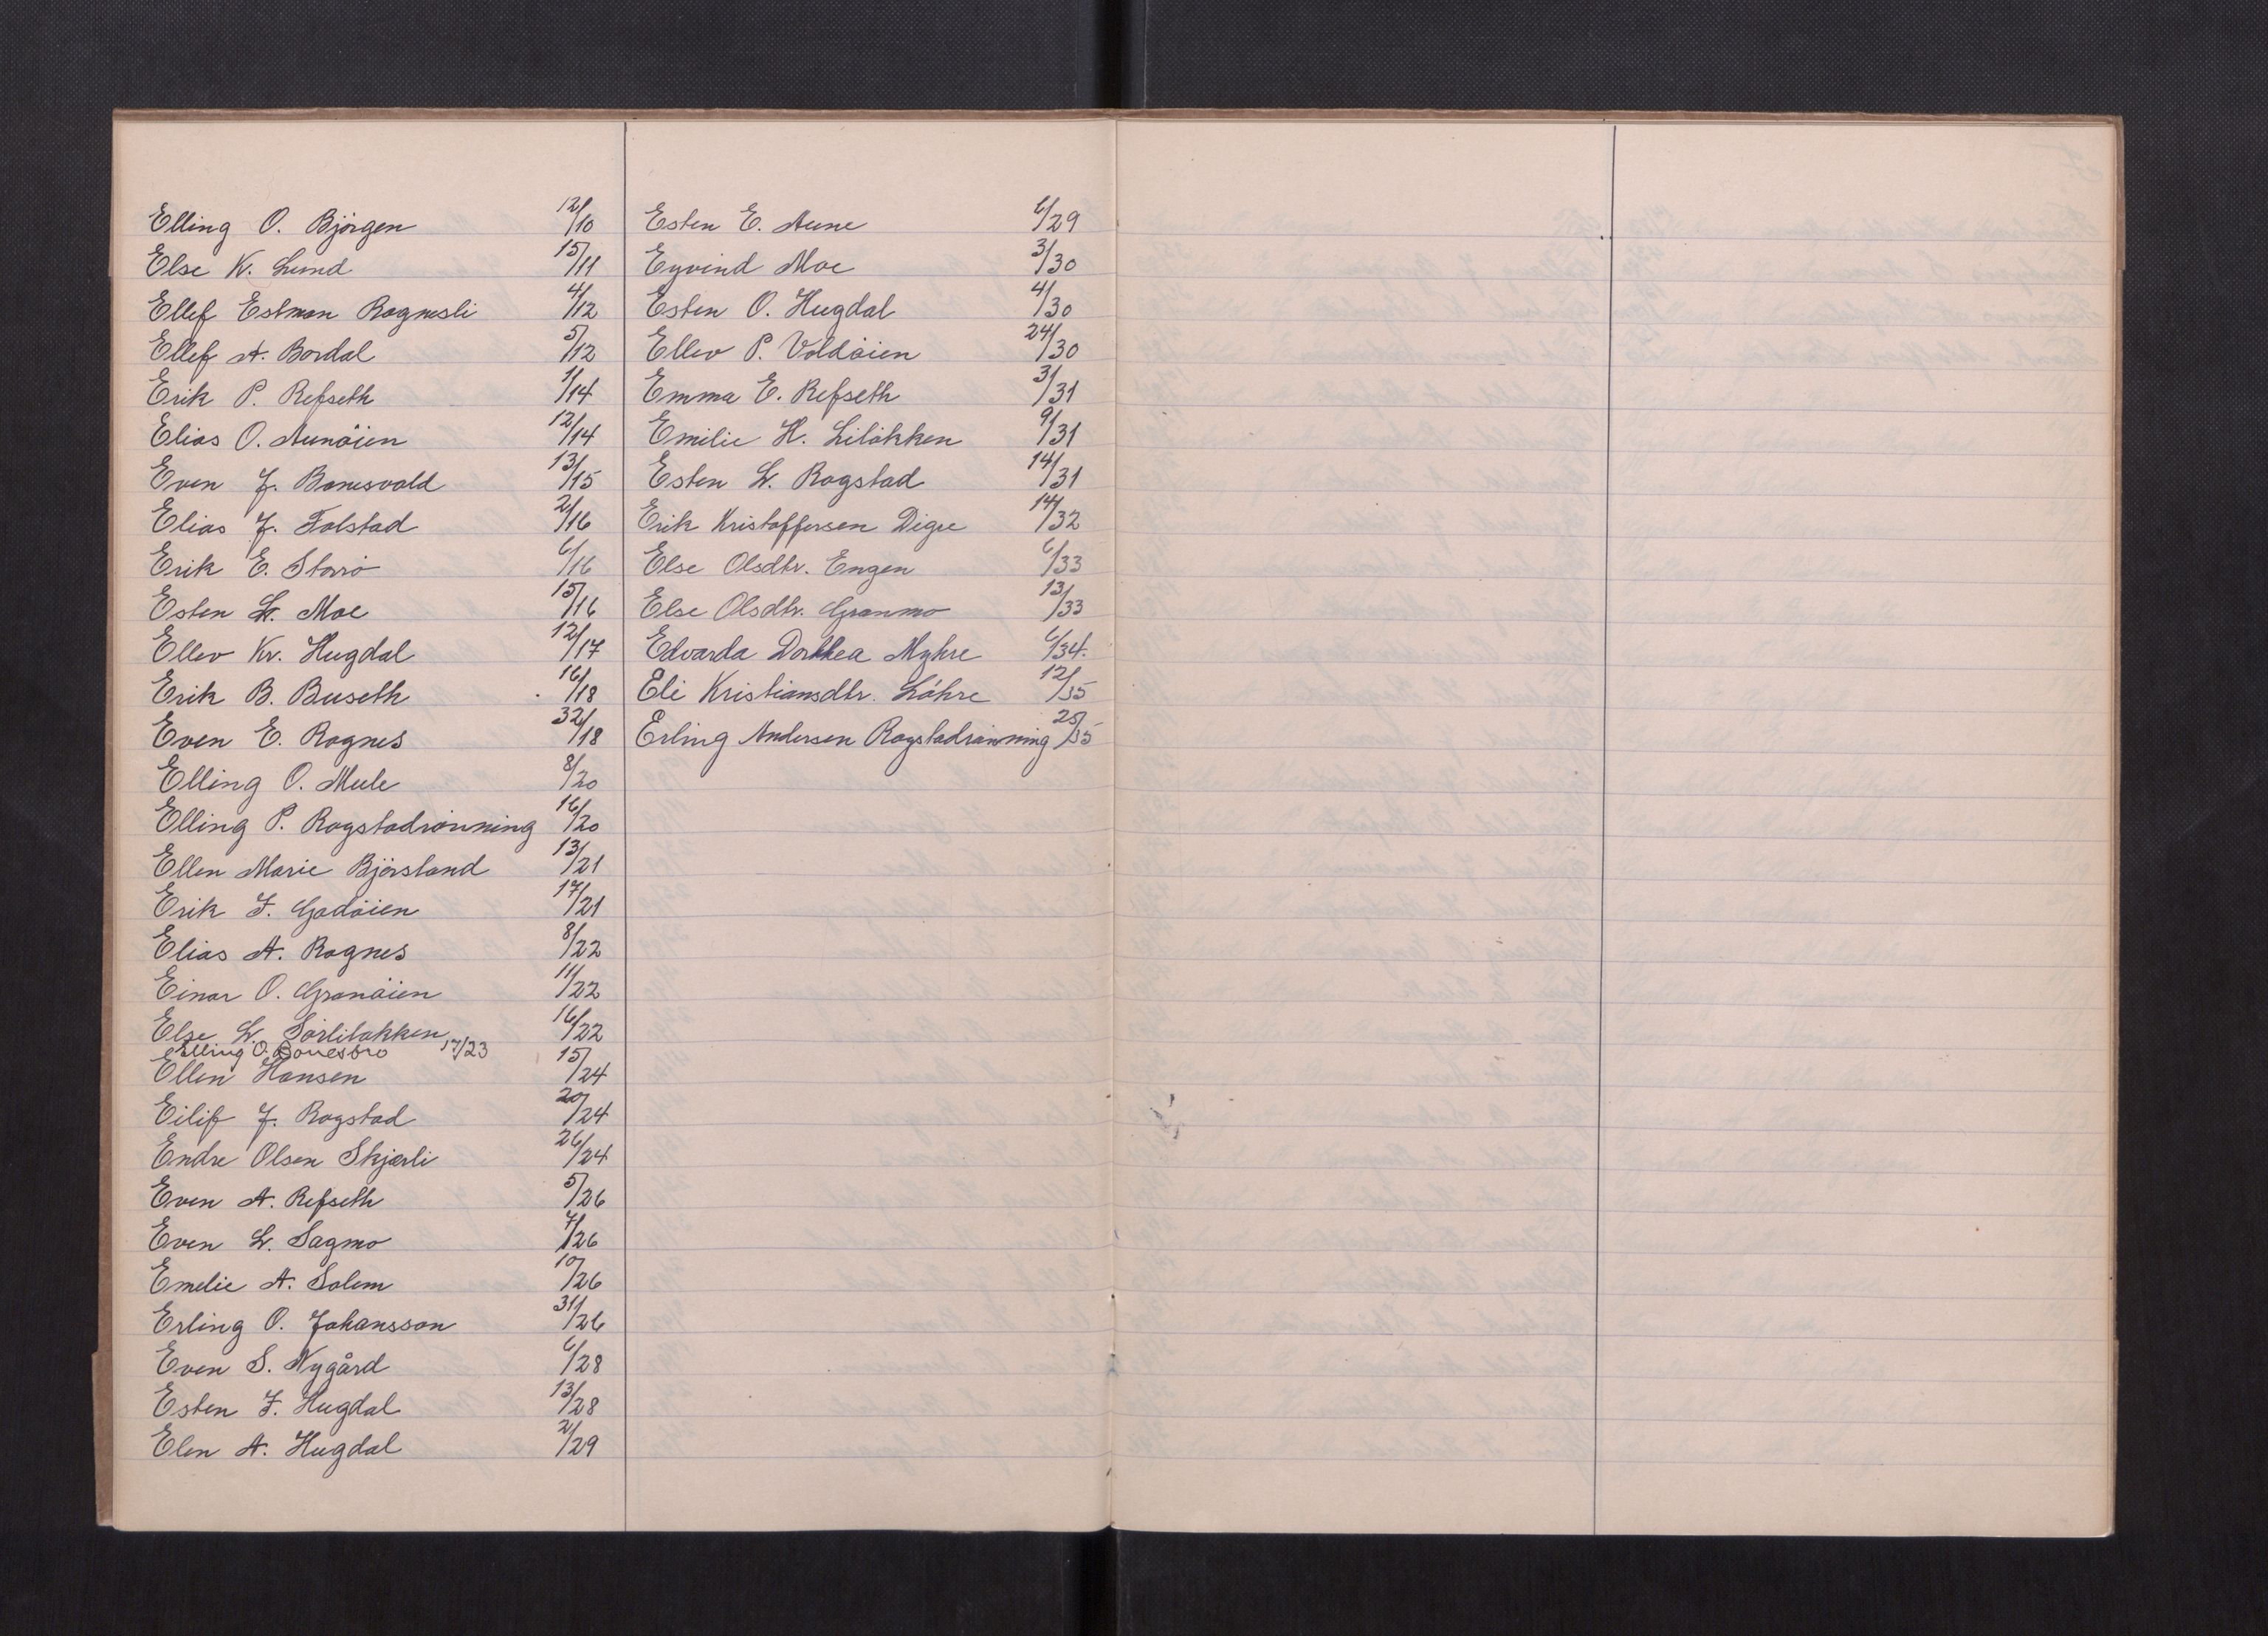 Elling O. Björgen 12/10
Else K. Lund 15/11
Ellef Estman Rognesli 4/12
Ellef A. Bordal 5/12
Erik P. Refseth 1/14
Elias O. Aunöien 12/14
Even J. Bonesvold 13/15
Elias J. Folstad 2/16
Erik E. Storrö 6/16
Esten L. Moe 15/16
Ellev Kr. Hugdal 12/17
Erik B. Buseth 16/18
Even E. Rognes 32/18
Elling O. Mule 8/20
Elling P. Rogstadrönning 16/20
Ellen Marie Björsland 13/21
Erik F. Godöien 17/21
Elias A. Rognes 8/22
Einar O. Granöien 11/22
Else L. Sörlilökken 16/22
Elling O. Bonesbro 17/23
Ellen Hansen 15/24
Eilif J. Rogstad 20/24
Endre Olsen Skjærli 26/24
Even A. Refseth 5/26
Even L. Sagmo 7/26
Emelie A. Solem 10/26
Erling O. Johansson 31/26
Even S. Nygård 6/28
Esten F. Hugdal 13/28
Elen A. Hugdal 2/29
Esten E. Aune 6/29
Eyvind Moe 3/30
Esten O. Hugdal 4/30
Ellev P. Voldöien 24/30
Emma E. Refseth 3/31
Emilie H. Lilökken 9/31
Esten L. Rogstad 14/31
Erik Kristoffersen Digre 14/32
Else Olsdtr. Engen 6/33
Else Olsdtr. Granmo 13/33
Edvarda Dorthea Myhre 6/34.
Eli Kristiansdtr. Löhre 12/35
Erling Andersen Rogstadrönning 25/35